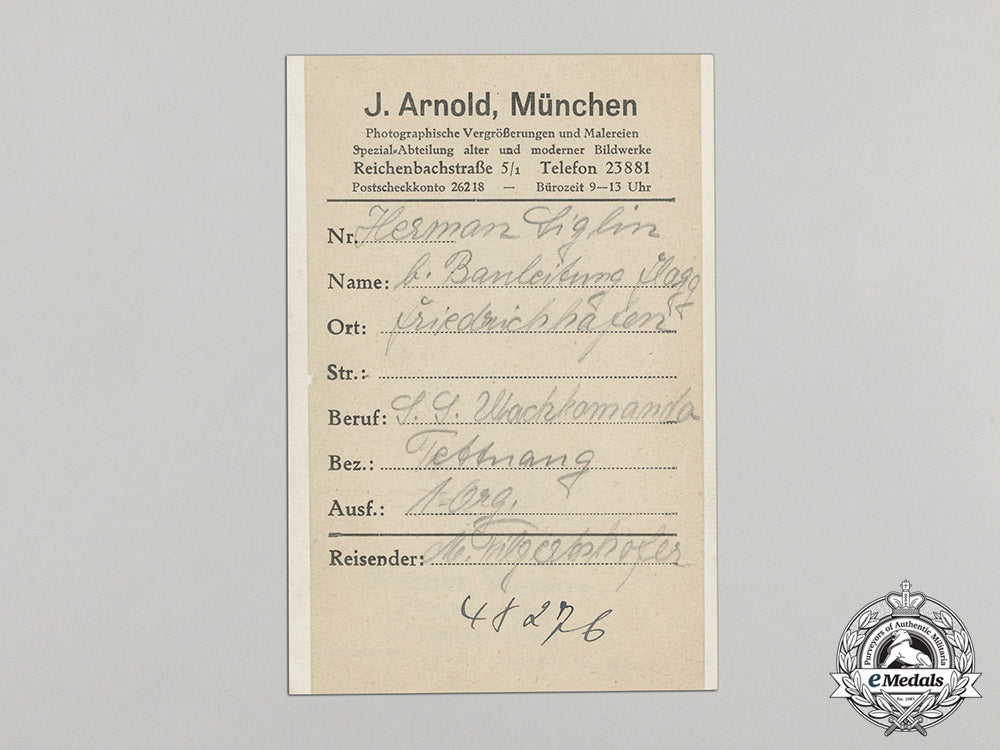 J. Arnold, München
Photographische Vergrößerungen und Malereien
Spezial-Abteilung alter und moderner Bildwerke
Reichenbachstraße 5/1 Telefon 23881
Postscheckkonto 26218 — Bürozeit 9—13 Uhr
Nr. Herman Siglin
Name: b. Bauleitung Flagg
Ort: Friedrichhafen
Str.:
Beruf: S. S. Wachkomando
Bez.: Tettnang
Ausf.: Org.
Reisender: M.
48276
Purveyors of Authentic Militaria
eMedals
Est. 1985